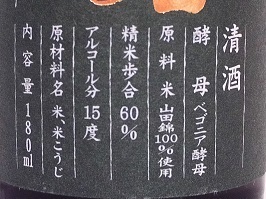 清酒
酵母 ベゴニア酵母
原料米 山田錦100%使用
精米歩合 60%
アルコール分 15度
原材料名 米、米こうじ
内容量 180ml